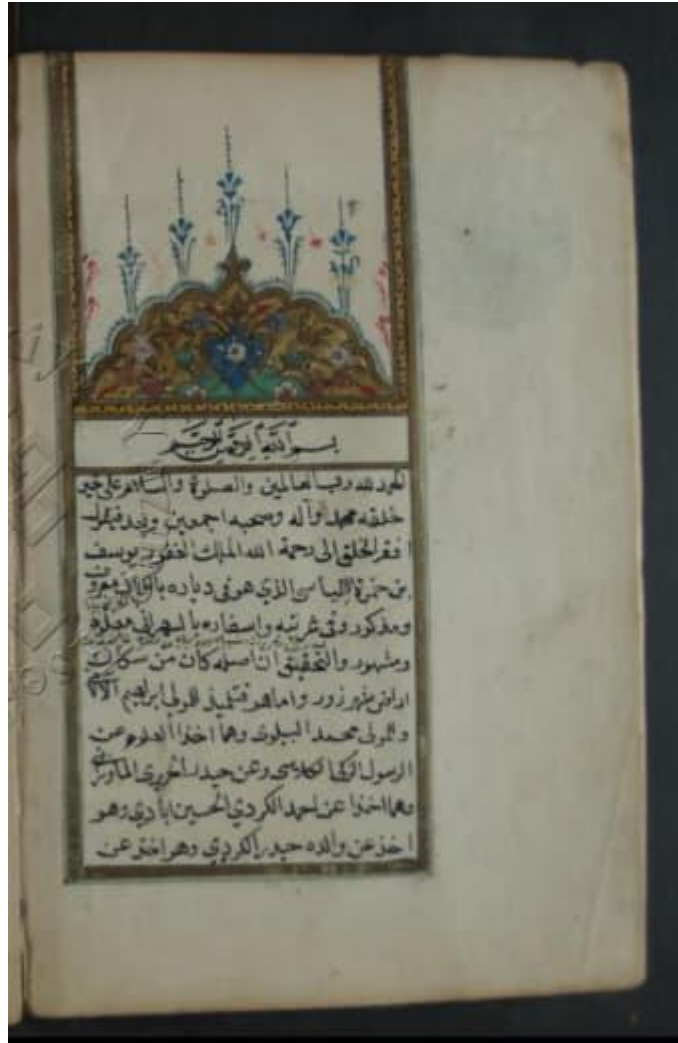 بسم الله الرحمن الرحيم
الحمد لله رب العالمين والصلوة والسلام على خير
خلقه محمد وآله وصحبه اجمعين وبعد فيقول
افقر الخلق الى رحمة الله الملك الغفور يوسف
بن حمزة الالياسي الذي هو في دياره معروف
ومذكور وفي غربته واسفاره
ومشهور والتحقيق ان اصله كان من سكان
اراضي شهرزور واما هو فتلميذ للمولى ابراهيم
وللمولى محمد وهما اخذا العلوم عن
الرسول الزكي وعن حيدر
وهما اخذا عن احمد الكردي الحسين ابادي وهو
اخذ عن والده حيدر الكردي وهو اخذ عن